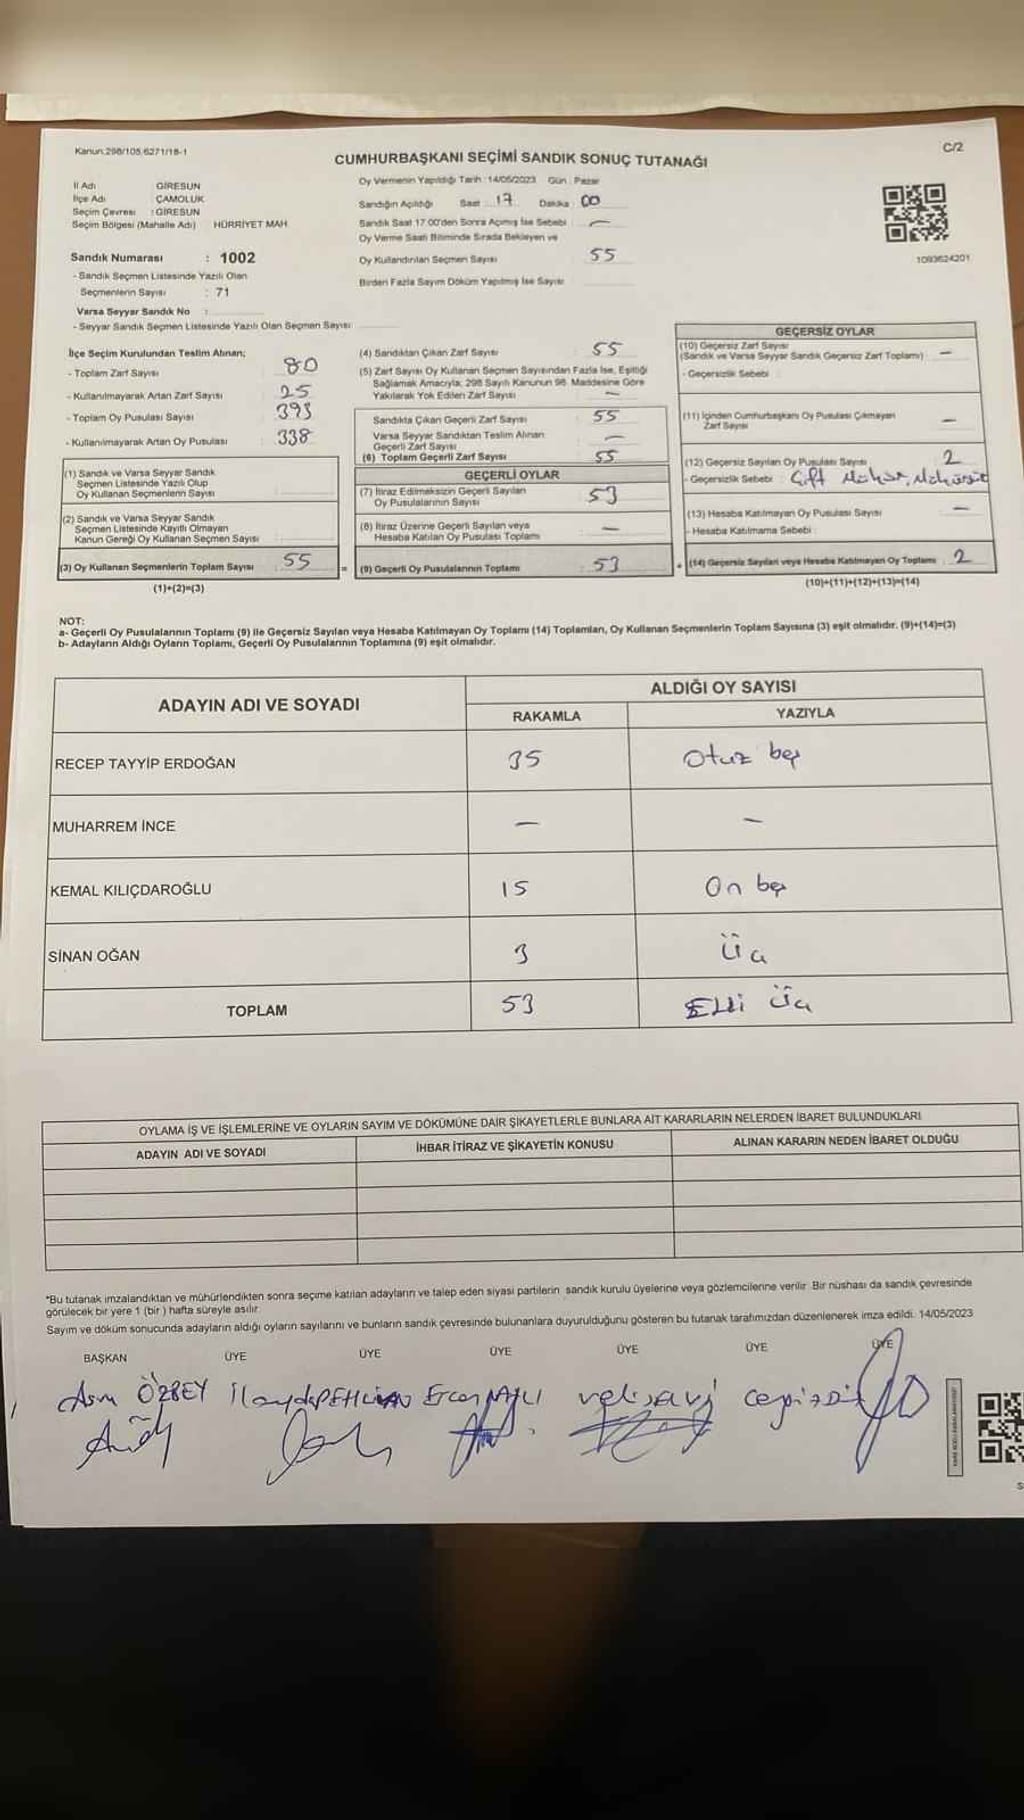 Kanun:298/105,6271/18-1
C/2
CUMHURBAŞKANI SEÇİMİ SANDIK SONUÇ TUTANAĞI
İl Adı GİRESUN
İlçe Adı ÇAMOLUK
Seçim Çevresi : GİRESUN
Seçim Bölgesi (Mahalle Adı) HÜRRİYET MAH.
Sandık Numarası : 1002
- Sandık Seçmen Listesinde Yazılı Olan
Seçmenlerin Sayısı : 71
Varsa Seyyar Sandık No :
- Seyyar Sandık Seçmen Listesinde Yazılı Olan Seçmen Sayısı
Oy Vermenin Yapıldığı Tarih : 14/05/2023 Gün : Pazar
Sandığın Açıldığı Saat : 17 Dakika : 00
Sandık Saat 17.00'den Sonra Açılmış İse Sebebi : —
Oy Verme Saati Bitiminde Sırada Bekleyen ve
Oy Kullandırılan Seçmen Sayısı 55
Birden Fazla Sayım Döküm Yapılmış İse Sayısı
1093624201
İlçe Seçim Kurulundan Teslim Alınan;
- Toplam Zarf Sayısı : 80
- Kullanılmayarak Artan Zarf Sayısı : 25
- Toplam Oy Pusulası Sayısı : 393
- Kullanılmayarak Artan Oy Pusulası : 338
(1) Sandık ve Varsa Seyyar Sandık
Seçmen Listesinde Yazılı Olup
Oy Kullanan Seçmenlerin Sayısı
(2) Sandık ve Varsa Seyyar Sandık
Seçmen Listesinde Kayıtlı Olmayan
Kanun Gereği Oy Kullanan Seçmen Sayısı
(3) Oy Kullanan Seçmenlerin Toplam Sayısı 55
(1)+(2)=(3)
(4) Sandıktan Çıkan Zarf Sayısı : 55
(5) Zarf Sayısı Oy Kullanan Seçmen Sayısından Fazla İse, Eşitliği
Sağlamak Amacıyla; 298 Sayılı Kanunun 98. Maddesine Göre
Yakılarak Yok Edilen Zarf Sayısı —
Sandıkta Çıkan Geçerli Zarf Sayısı : 55
Varsa Seyyar Sandıktan Teslim Alınan
Geçerli Zarf Sayısı —
(6) Toplam Geçerli Zarf Sayısı : 55
GEÇERLİ OYLAR
(7) İtiraz Edilmeksizin Geçerli Sayılan
Oy Pusulalarının Sayısı : 53
(8) İtiraz Üzerine Geçerli Sayılan veya
Hesaba Katılan Oy Pusulası Toplamı —
= (9) Geçerli Oy Pusulalarının Toplamı : 53
GEÇERSİZ OYLAR
(10) Geçersiz Zarf Sayısı
(Sandık ve Varsa Seyyar Sandık Geçersiz Zarf Toplamı) —
- Geçersizlik Sebebi :
(11) İçinden Cumhurbaşkanı Oy Pusulası Çıkmayan
Zarf Sayısı —
(12) Geçersiz Sayılan Oy Pusulası Sayısı 2
- Geçersizlik Sebebi : Çift Mühür, Mühürsüz
(13) Hesaba Katılmayan Oy Pusulası Sayısı —
- Hesaba Katılmama Sebebi :
+ (14) Geçersiz Sayılan veya Hesaba Katılmayan Oy Toplamı : 2
(10)+(11)+(12)+(13)=(14)
NOT:
a- Geçerli Oy Pusulalarının Toplamı (9) ile Geçersiz Sayılan veya Hesaba Katılmayan Oy Toplamı (14) Toplamları, Oy Kullanan Seçmenlerin Toplam Sayısına (3) eşit olmalıdır. (9)+(14)=(3)
b- Adayların Aldığı Oyların Toplamı, Geçerli Oy Pusulalarının Toplamına (9) eşit olmalıdır.
ADAYIN ADI VE SOYADI
ALDIĞI OY SAYISI
RAKAMLA YAZIYLA
RECEP TAYYİP ERDOĞAN 35 Otuz beş
MUHARREM İNCE — —
KEMAL KILIÇDAROĞLU 15 On beş
SİNAN OĞAN 3 Üç
TOPLAM 53 Elli Üç
OYLAMA İŞ VE İŞLEMLERİNE VE OYLARIN SAYIM VE DÖKÜMÜNE DAİR ŞİKAYETLERLE BUNLARA AİT KARARLARIN NELERDEN İBARET BULUNDUKLARI
ADAYIN ADI VE SOYADI İHBAR İTİRAZ VE ŞİKAYETİN KONUSU ALINAN KARARIN NEDEN İBARET OLDUĞU
*Bu tutanak imzalandıktan ve mühürlendikten sonra seçime katılan adayların ve talep eden siyasi partilerin sandık kurulu üyelerine veya gözlemcilerine verilir. Bir nüshası da sandık çevresinde
görülecek bir yere 1 (bir ) hafta süreyle asılır.
Sayım ve döküm sonucunda adayların aldığı oyların sayılarını ve bunların sandık çevresinde bulunanlara duyurulduğunu gösteren bu tutanak tarafımızdan düzenlenerek imza edildi. 14/05/2023
BAŞKAN ÜYE ÜYE ÜYE ÜYE ÜYE ÜYE
ÖZBEY